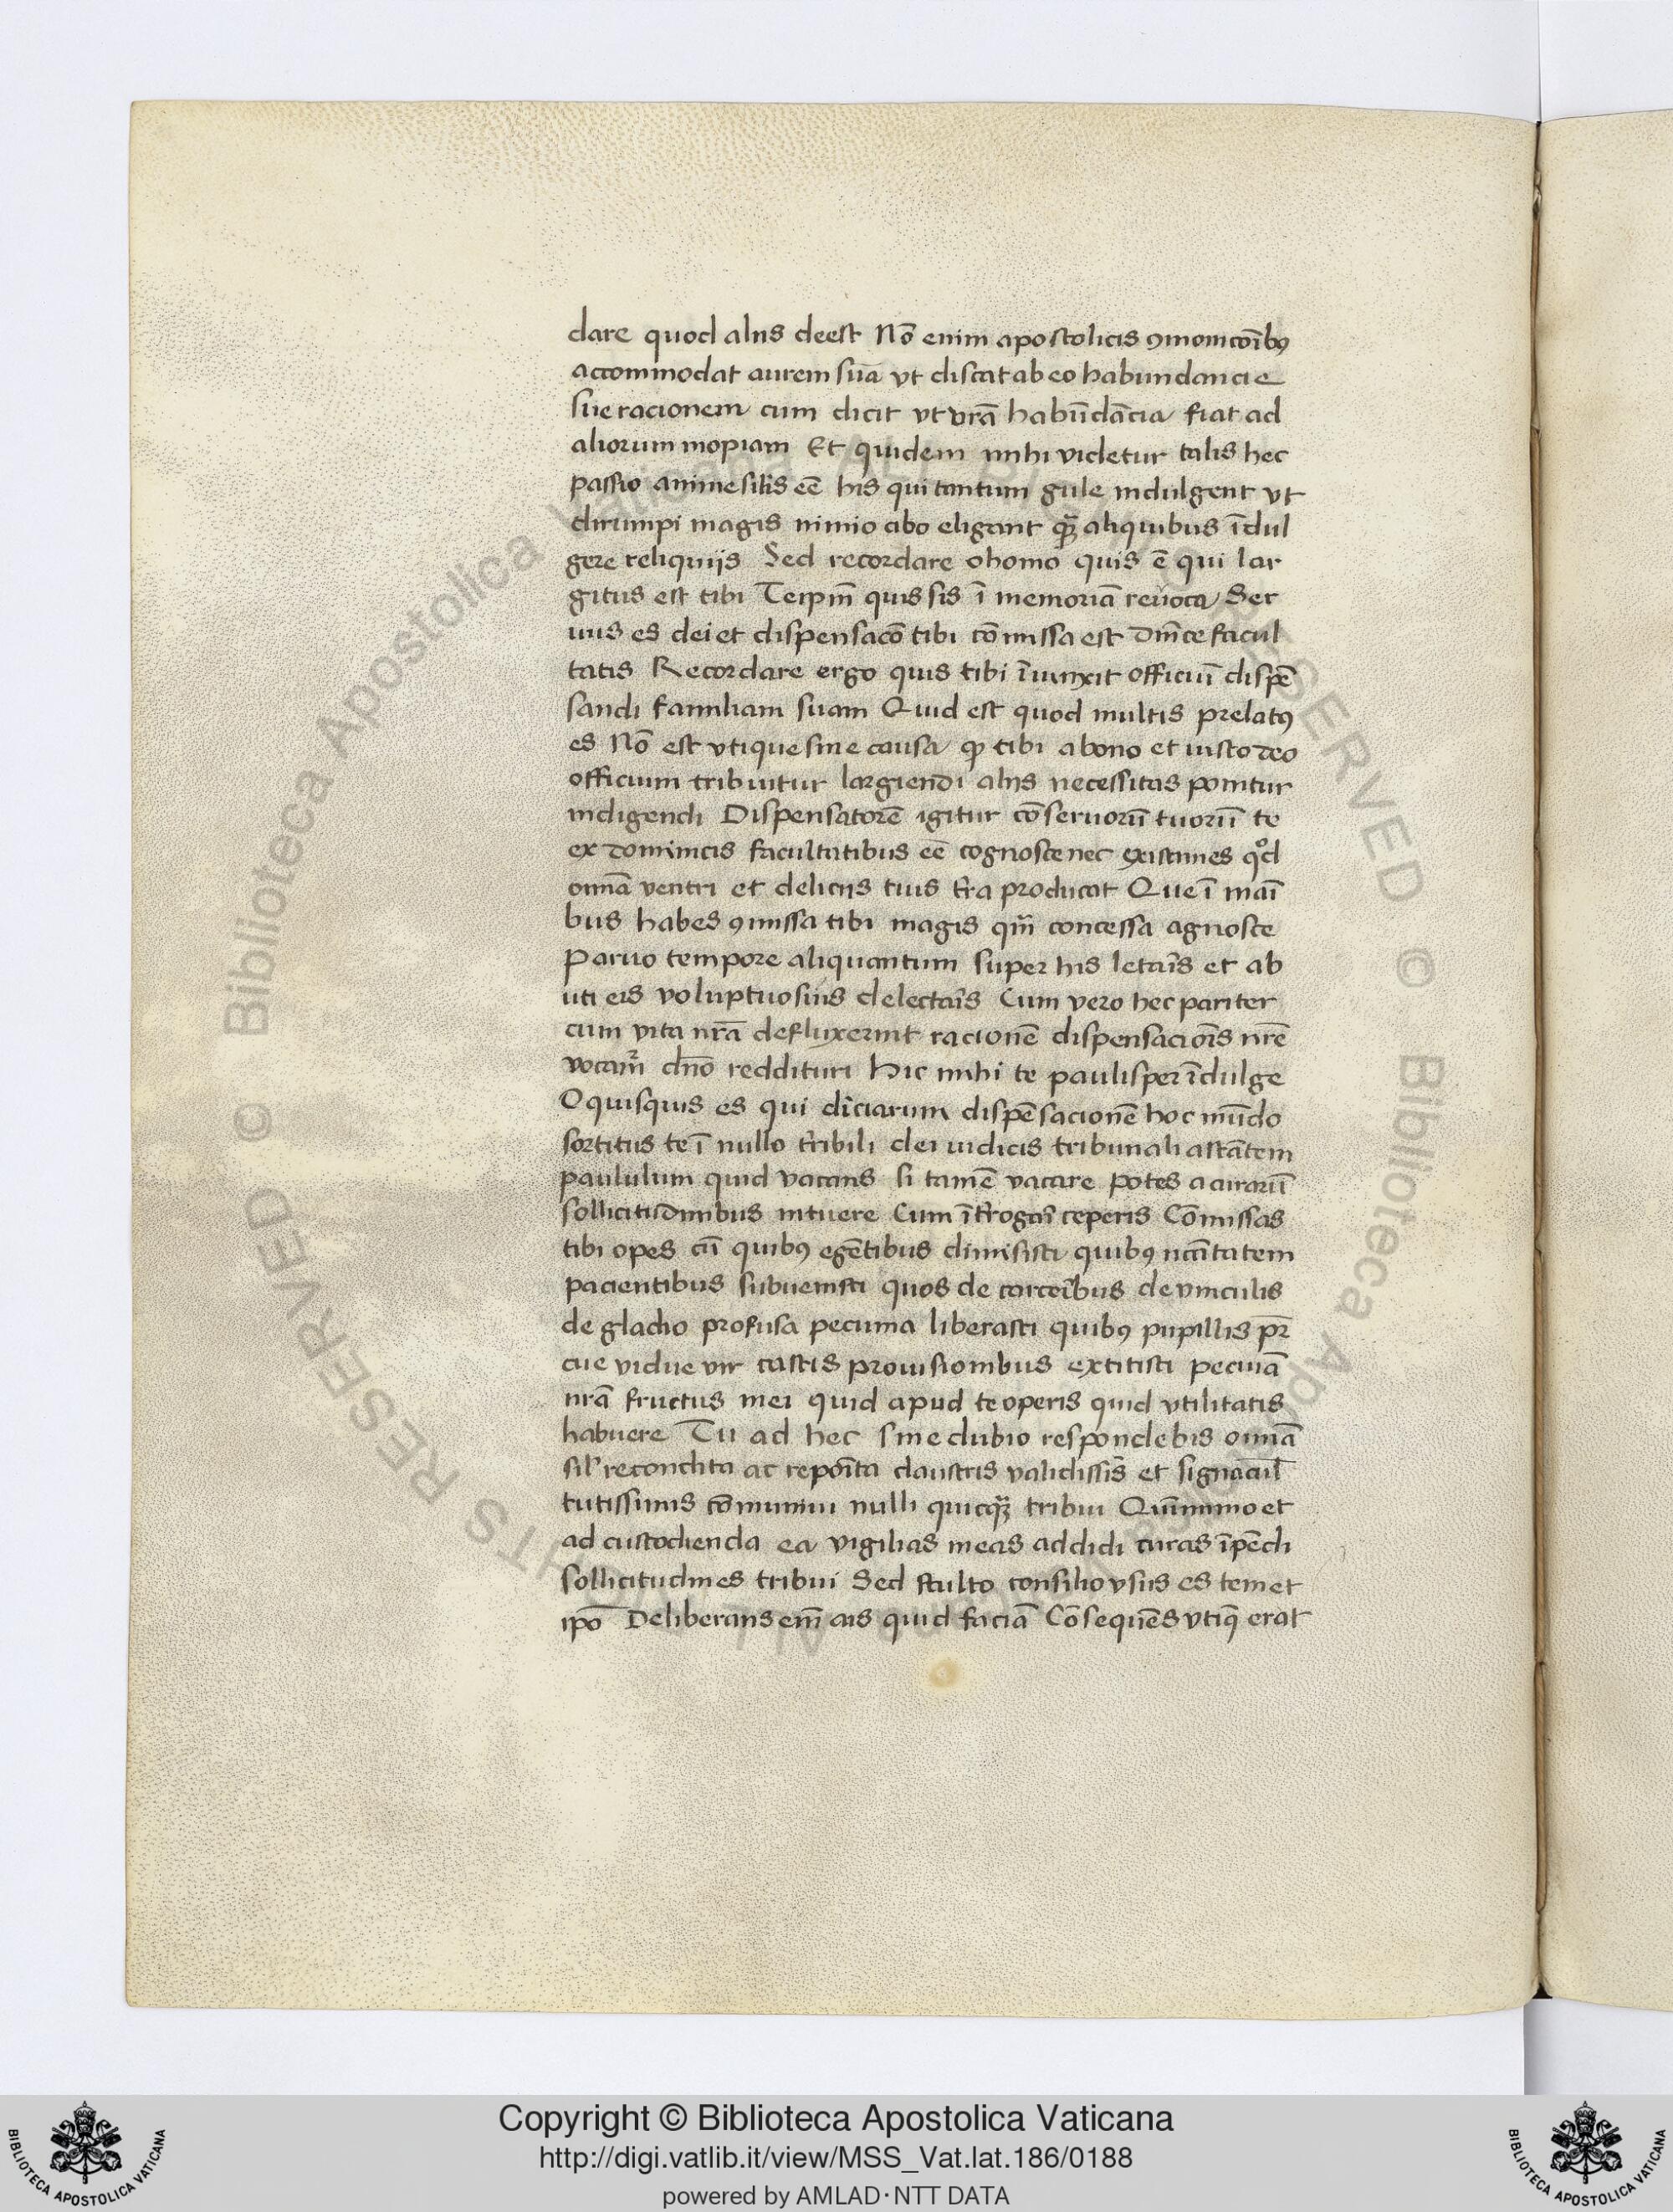 dare quod aliis deest Nō enim apostolicis ꝯmonicōibꝰ
accommodat aurem suā vt discat ab eo habundancie
sue racionem cum dicit vt vrā habūdācia fiat ad
aliorum inopiam Et quidem mihi videtur talis hec
passio anime silis eē his qui tantum gule indulgent vt
dirumpi magis nimio cibo eligant qꝫ aliquibus īdul
gere reliquijs Sed recordare o homo quis ē qui lar
gitus est tibi Teipm̄ quis sis ī memoriā reuoca Ser
uus es dei et dispensacō tibi cōmissa est dn̄ice facul
tatis Recordare ergo quis tibi īiunxit officiū dispē
sandi familiam suam Quid est quod multis prelatꝰ
es Nō est vtique sine causa ꝙ tibi a bono et iusto deo
officium tribuitur largiendi aliis necessitas ponitur
indigendi Dispensatorē igitur cōseruorū tuorū te
ex dominicis facultatibus eē cognosce nec existimes qod
omīa ventri et deliciis tuis tr̄a producat Que ī maī
bus habes ꝯmissa tibi magis qm̄ concessa agnosce
Paruo tempore aliquantum super his letar̄is et ab
uti eis voluptuosius delectar̄is Cum vero hec pariter
cum vita nrā defluxerint racionē dispensaciōis nrē
vocam̄r dn̄o reddituri Hic mihi te paulisper īdulge
O quisquis es qui diciarum dispēsacionē hoc mūdo
sortitus te ī nullo tr̄ribili dei iudicis tribunali astātem
paululum quid vacans si tamē vacare potes a curarū
sollicitudinibus intuere Cum ītrogari ceperis Cōmissas
tibi opes cū quibꝰ egētibus dimisisti quibꝰ ncc̄itatem
pacientibus subuenisti quos de carcerībus de vinculis
de gladio profusa pecunia liberasti quibꝰ pupillis pr̄
cue vidue vir castis prouisionibus extitisti pecuīa
nrā fructus mei quid apud te operis quid vtilitatis
habuere Tu ad hec sine dubio respondebis omīa
sil' recondita ac reposita claustris validissīs et signacul'
tutissimis cōmuniui nulli quicqꝫ tribui Quinimmo et
ad custodienda ea vigilias meas addidi curas īpēdi
sollicitudines tribui Sed stulto consilio vsus es temet
ipō Deliberans em̄ ais quid faciā Cōsequēs vtiqꝫ erat
Copyright © Biblioteca Apostolica Vaticana
http://digi.vatlib.it/view/MSS_Vat.lat.186/0188
powered by AMLAD·NTT DATA
BIBLIOTECA APOSTOLICA VATICANA
BIBLIOTECA APOSTOLICA VATICANA